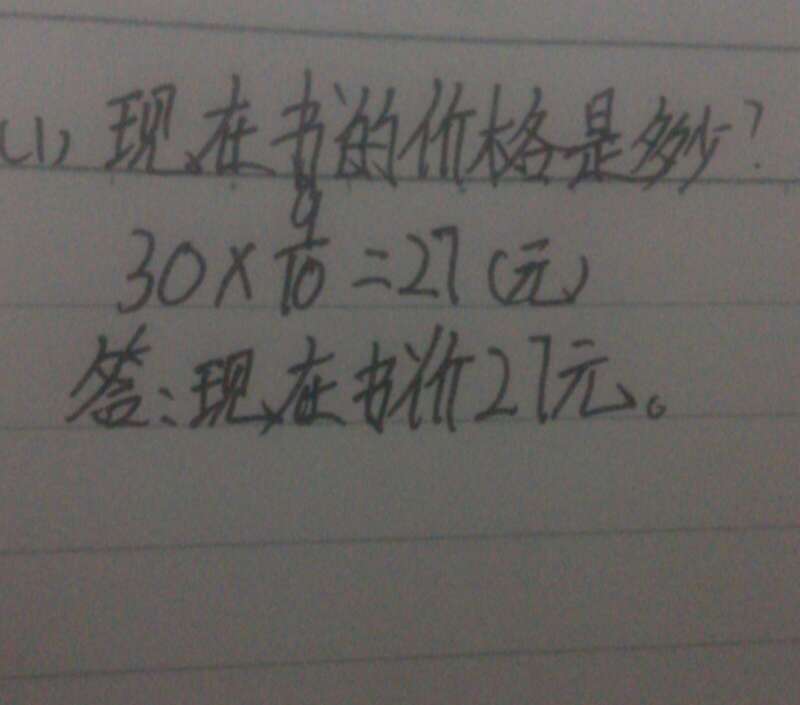 (1) 现在书的价格是多少?
30×9/10=27(元)
答:现在书价27元。